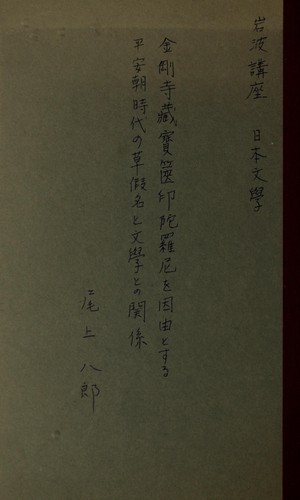 岩波講座 日本文學
金剛寺藏寶篋印陀羅尼を因由とする
平安朝時代の草假名と文學との関係
尾上八郎